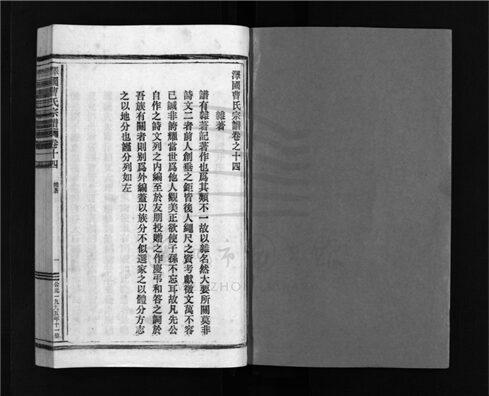 澤國曹氏宗譜卷之十四
雜著
譜有雜著記著作也爲其類不一故以雜名然大要所關莫非
詩文二者前人創垂之鉅皆後人繩尺之資考獻徵文萬不容
已誠非誇耀當世爲他人觀美正欲使子孫不忘耳故凡先公
自作之詩文列之內編至於友朋投贈之作慶弔和答之詞於
吾族有關者則別爲外編蓋以族分不似選家之以體分方志
之以地分也謹分列如左
澤國曹氏宗譜卷十四
雜著
一
公元一九九五年十一修